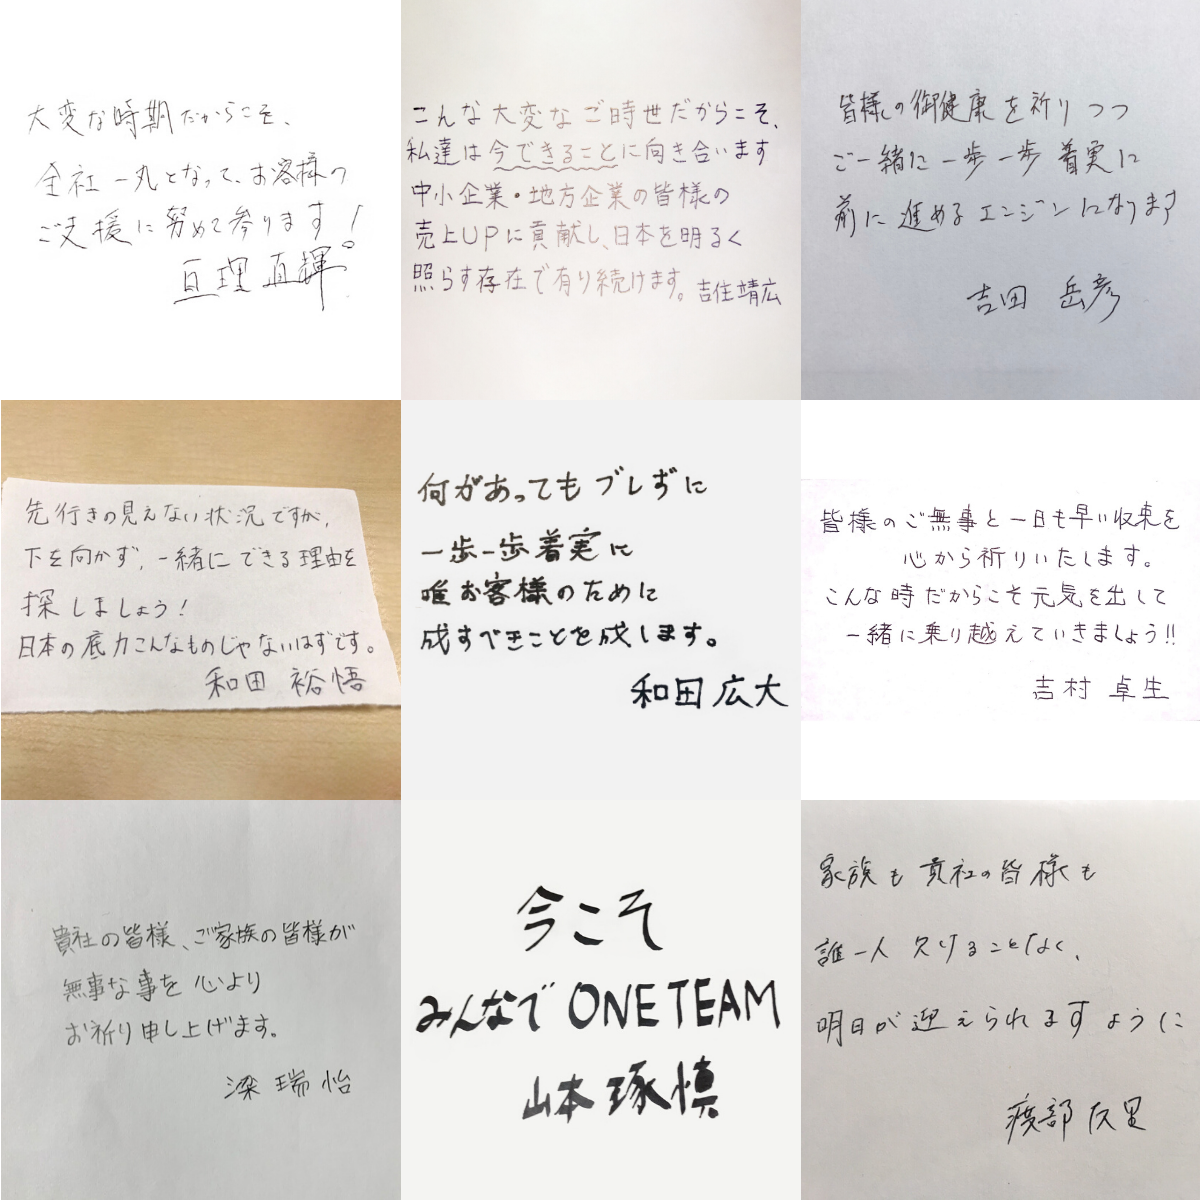 大変な時期だからこそ、
全社一丸となって、お客様の
ご支援に努めて参ります！
亘理直輝。
こんな大変なご時世だからこそ、
私達は今できることに向き合います
中小企業・地方企業の皆様の
売上UPに貢献し、日本を明るく
照らす存在で有り続けます。吉住靖広
皆様の御健康を祈りつつ
ご一緒に一歩一歩着実に
前に進めるエンジンになります
吉田 岳彦
先行きの見えない状況ですが、
下を向かず、一緒にできる理由を
探しましょう！
日本の底力こんなものじゃないはずです。
和田 裕悟
何があってもブレずに
一歩一歩着実に
唯お客様のために
成すべきことを成します。
和田広大
皆様のご無事と一日も早い収束を
心から祈りいたします。
こんな時だからこそ元気を出して
一緒に乗り越えていきましょう!!
吉村 卓生
貴社の皆様、ご家族の皆様が
無事な事を心より
お祈り申し上げます。
梁 瑞怡
今こそ
みんなで ONE TEAM
山本琢慎
家族も貴社の皆様も
誰一人欠けることなく、
明日が迎えられますように
渡部友里